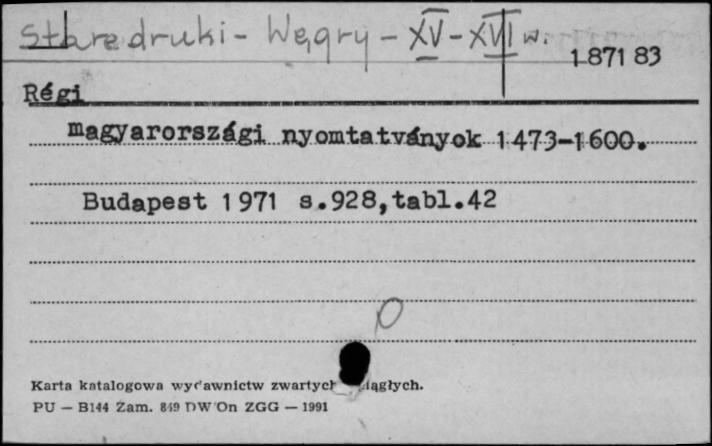 Stare druki - Węgry - XV - XVI w.
1871 83
Régi
magyarországi nyomtatványok 1473-1600.
Budapest 1971 s.928,tabl.42
0
Karta katalogowa wydawnictw zwartych
PU — B144 Zam. 849 DW On ZGG — 1991